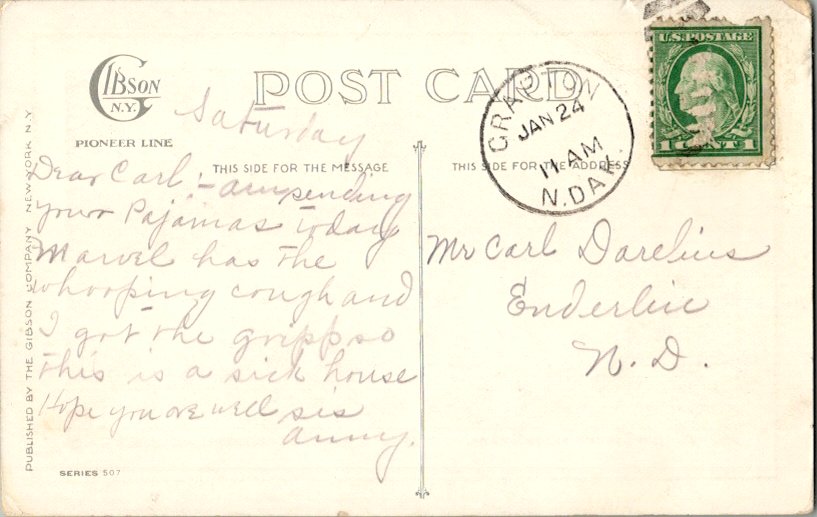 GIBSON
N.Y.
PIONEER LINE
POST CARD
THIS SIDE FOR THE MESSAGE
THIS SIDE FOR THE ADDRESS
GRAFTON
JAN 24
11 AM
N. DAK.
U.S. POSTAGE
1 CENT 1
Saturday
Dear Carl:- am sending
your Pajamas today
Marvel has the
whooping cough and
I got the gripp so
this is a sick house
Hope you are well sis
Mr Carl Darelius
Enderlin
N. D.
PUBLISHED BY THE GIBSON COMPANY NEW YORK N.Y.
SERIES 507